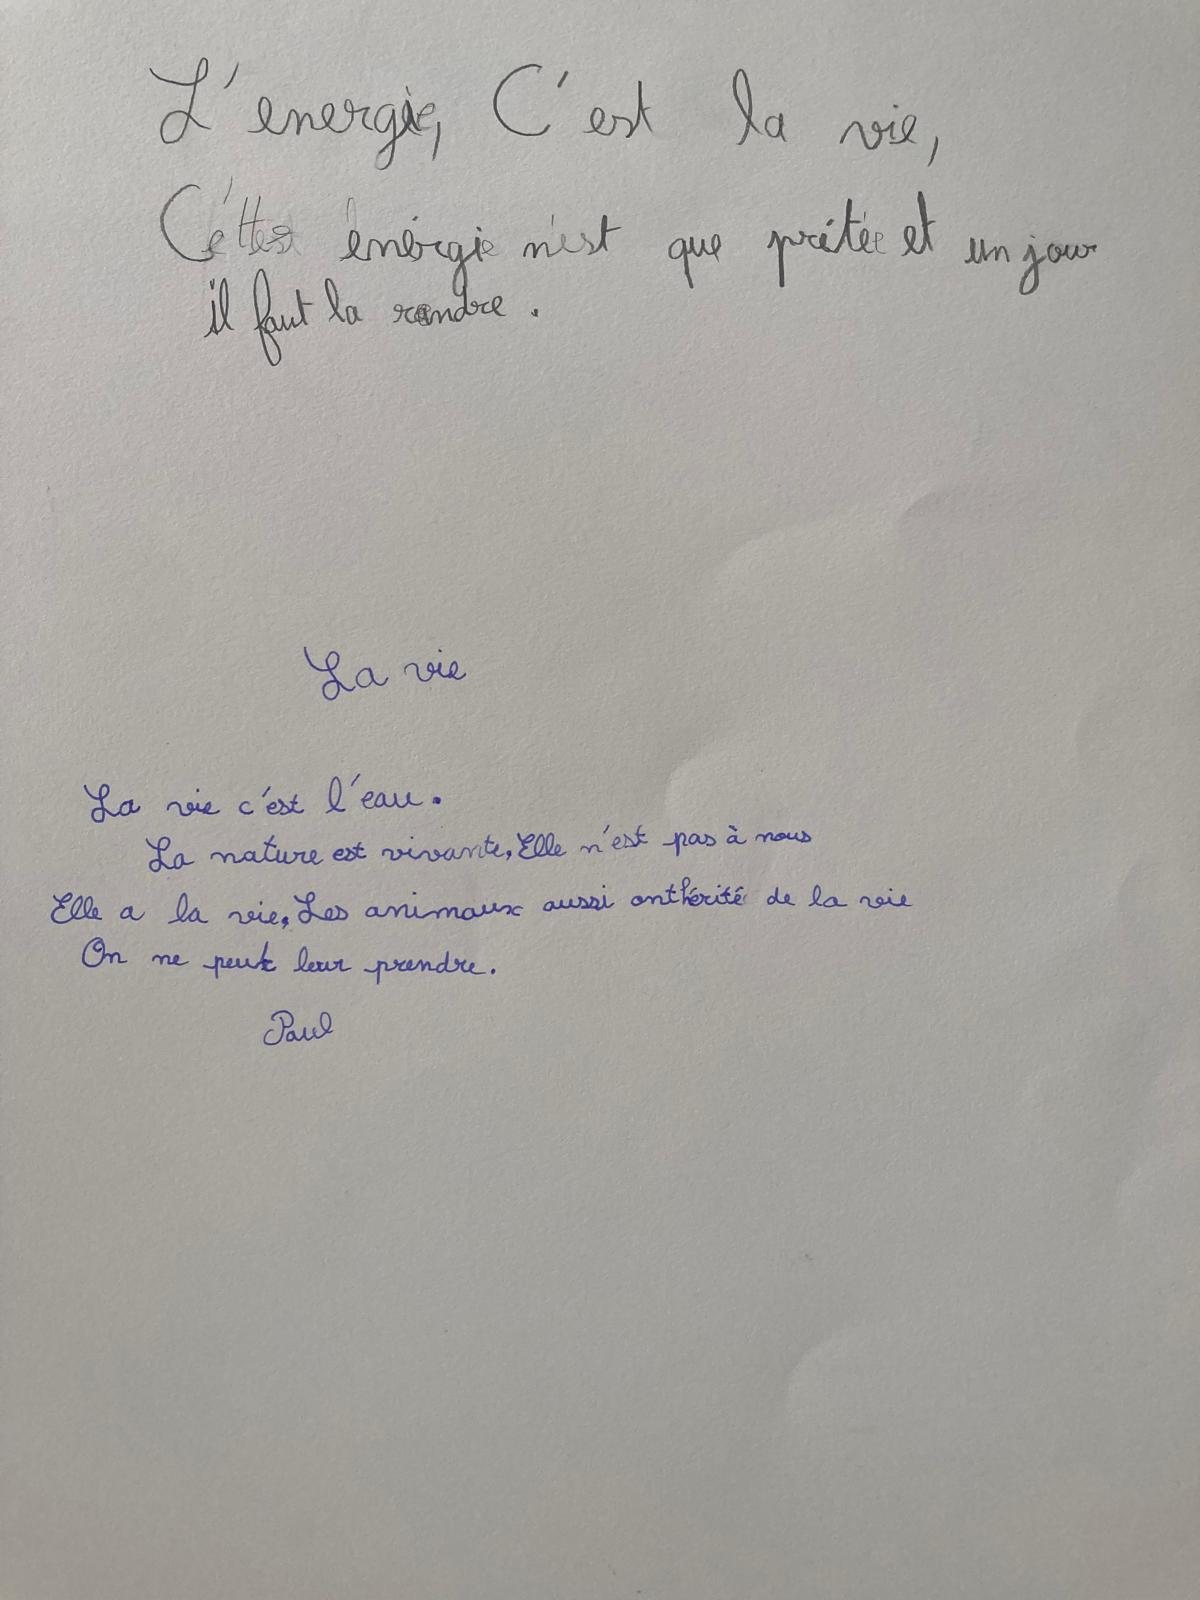 L'energie, C'est la vie,
Cette énergie n'est que prêtée et un jour
il faut la rendre.
La vie
La vie c'est l'eau.
La nature est vivante, Elle n'est pas à nous
Elle a la vie, Les animaux aussi ont hérité de la vie
On ne peut leur prendre.
Paul